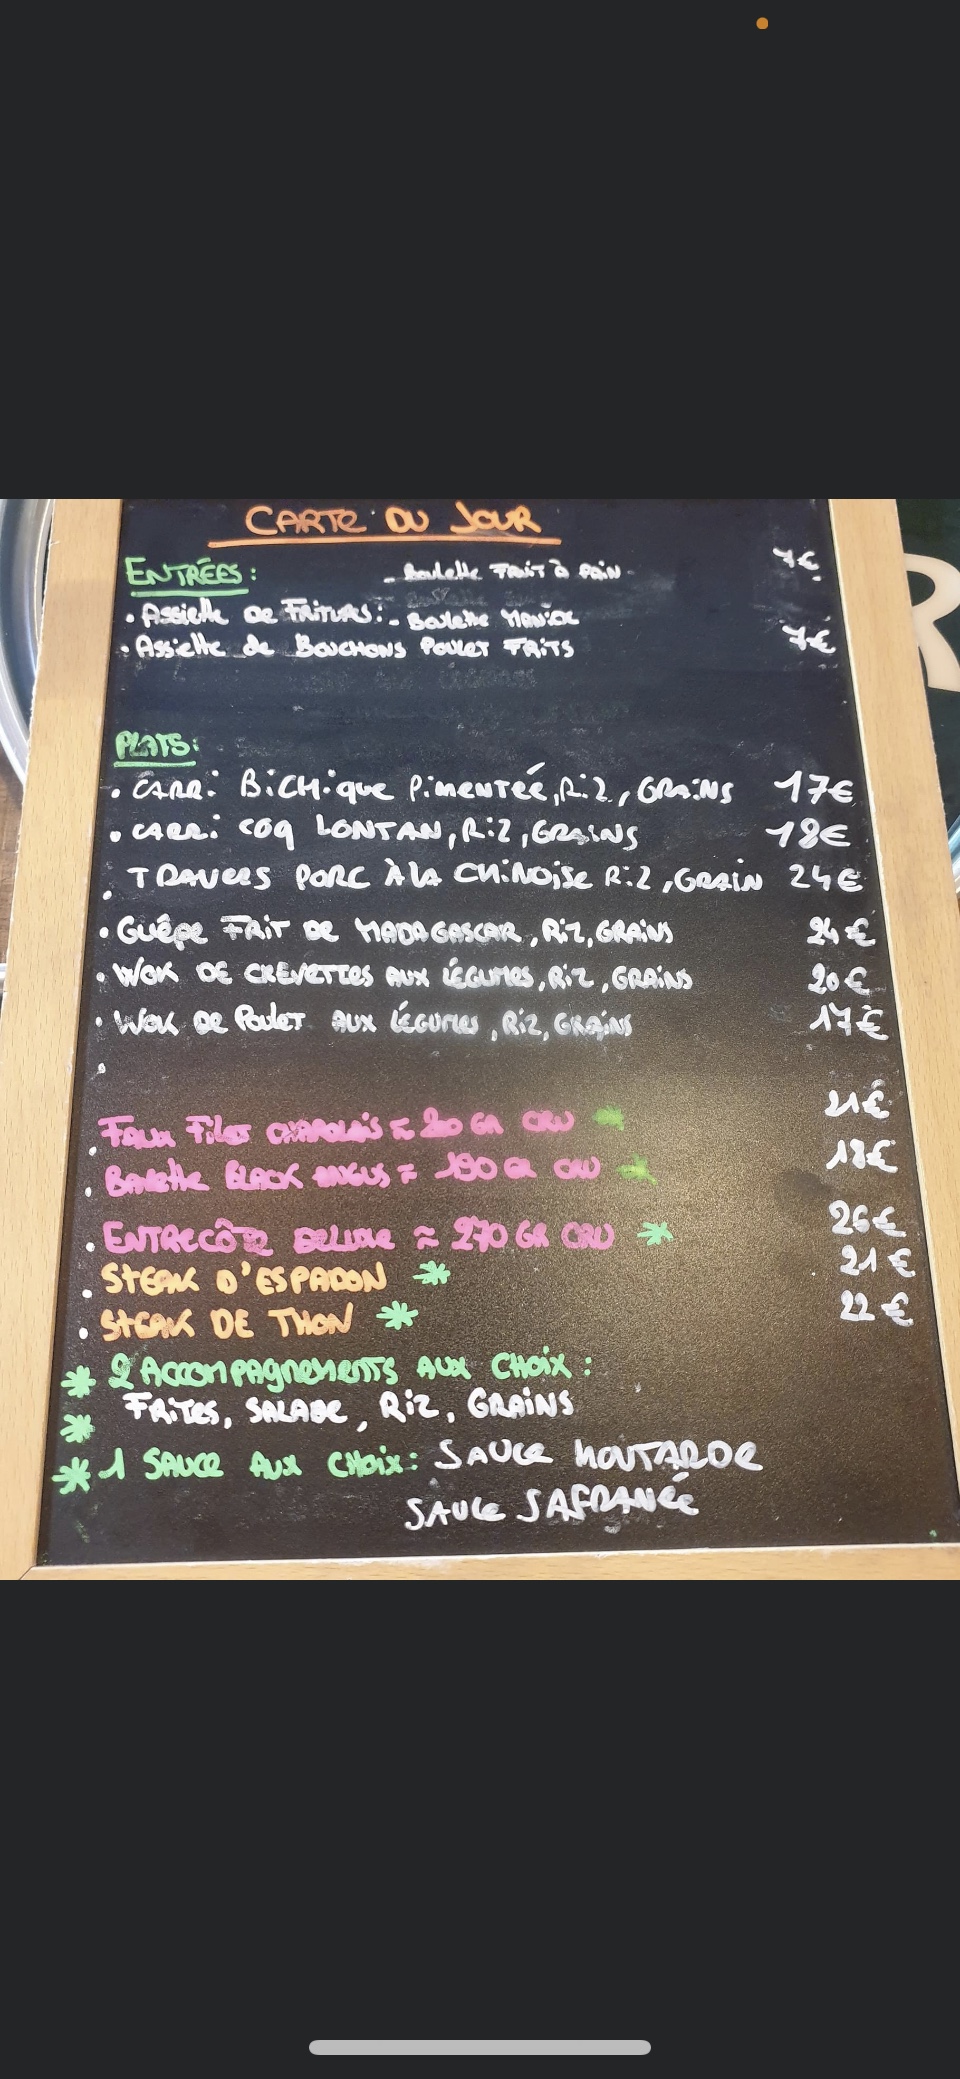 CARTE DU JOUR
ENTRÉES:
- Boulette FRUIT À PAIN
7€
• Assiette de FRITURES: - Boulette MANIOC
• Assiette de BOUCHONS POULET FRITS 7€
PLATS:
• CARRi BiCHique PiMENTÉE, RiZ, GRAiNS 17€
• CARRi COQ LONTAN, RiZ, GRAiNS 18€
• TRAVERS PORC À LA CHiNOiSE RiZ, GRAiN 24€
• GUÊPE FRiT DE MADAGASCAR, RiZ, GRAiNS 24€
• WOK DE CREVETTES AUX LÉGUMES, RiZ, GRAiNS 20€
• WOK DE Poulet AUX LÉGUMES, RiZ, GRAiNS 17€
•
• FAUX FiLET CHAROLAiS ≈ 20 GR CRU * 21€
• BAVETTE BLACK ANGUS ≈ 180 GR CRU * 18€
• ENTRECÔTE DELUXE ≈ 270 GR CRU * 26€
• STEAK D'ESPADON * 21€
• STEAK DE THON * 22€
* 2 ACCOMPAGNEMENTS AUX CHOIX:
* FRITES, SALADE, RiZ, GRAiNS
* 1 SAUCE AUX CHOIX: SAUCE MOUTARDE
SAUCE SAFRANÉE